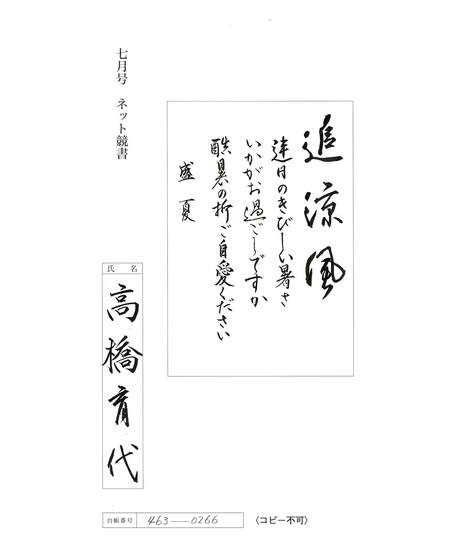 七月号 ネット競書
追涼風
連日のきびしい暑さ
いかがお過ごしですか
酷暑の折ご自愛ください
盛夏
氏名
高橋育代
台帳番号 463—0266
(コピー不可)